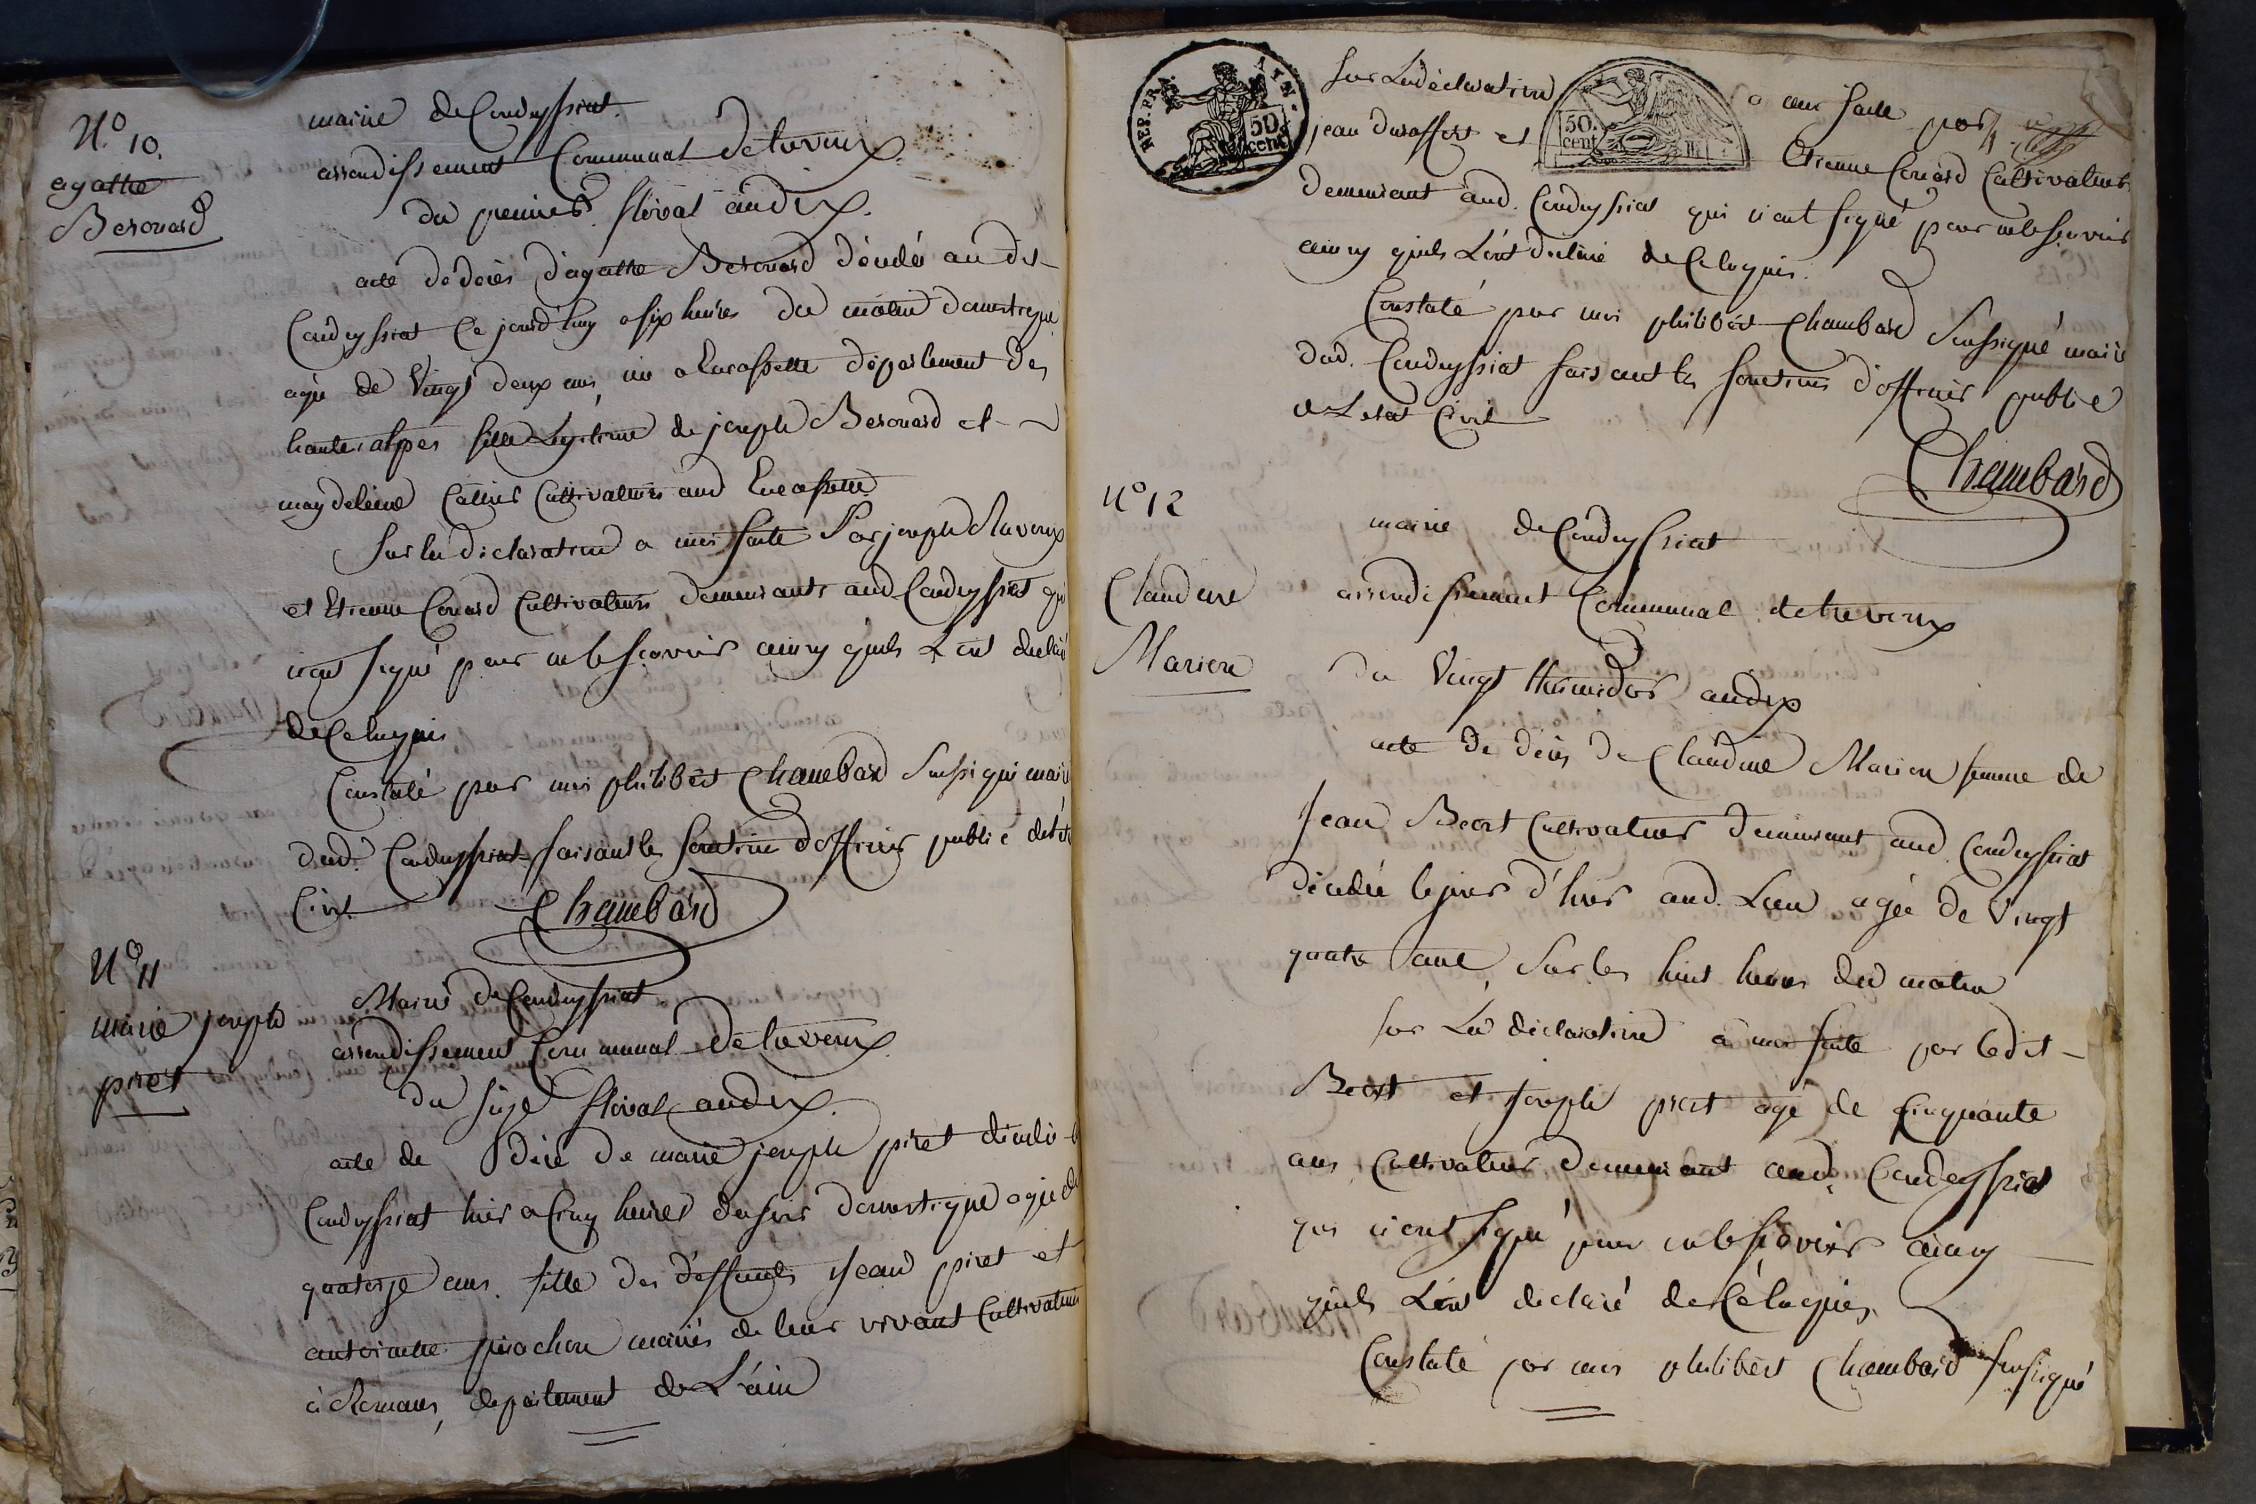 N° 10.
agathe
Berouard
mairie de Condeyssiat.
arrondissement Communal de trevoux.
du premier floréal an dix.
acte de décès d'agathe Berouard décédée au dit
Condeyssiat Ce jourd'huy a six heures du matin domestique
agée de Vingt deux ans, née a département des
hautes alpes fille Legitime de joseph Berouard et
magdeleine Cultivateurs aud
Sur la déclaration a moi faite Par joseph Ravoux
et Etienne Couard Cultivateurs demeurants aud. Condeyssiat qui
n'ont signé pour ne le sçavoir ainsy qu'ils L'ont déclaré
de Ce Requis
Constaté par moi philibert Chambard Soussigné maire
dud. Condeyssiat faisant les fonctions d'officier public de l'état
Civil
Chambard
N° 11
marie joseph
piret
Mairie de Condeyssiat
arrondissement Communal de trevoux.
du seize floréal an dix.
acte de décè de marie joseph piret décédée
Condeyssiat hier a Cinq heures du soir domestique agée de
quatorze ans. fille des deffunts jean piret et
antoinette pirochon mariés de leur vivant Cultivateurs
à Romans, département de L'ain
REP. FRA. AYN. 50 cent
50. cent
Sur La déclaration a moi faite par
jean duraffort et Etienne Couard Cultivateurs
demeurant aud. Condeyssiat qui n'ont signé pour ne le sçavoir
ainsy qu'ils L'ont déclaré de Ce Requis.
Constaté par moi philibert Chambard Soussigné maire
dud. Condeyssiat faisant les fonctions d'officier public
de L'etat Civil
Chambard
N° 12
Claudine
Marion
mairie de Condeyssiat
arrondissement Communal de trevoux
du Vingt thermidor an dix
acte de décès de Claudine Marion femme de
Jean Beort Cultivateur demeurant aud. Condeyssiat
décédée le jour d'hier aud. Lieu agée de Vingt
quatre ans Sur les huit heures du matin
Sur La déclaration a moi faite par le dit
Beort et joseph piret agé de Cinquante
ans Cultivateur demeurant aud. Condeyssiat
qui n'ont signé pour ne le sçavoir ainsy
qu'ils L'ont déclaré de Ce Requis,
Constaté par moi philibert Chambard soussigné